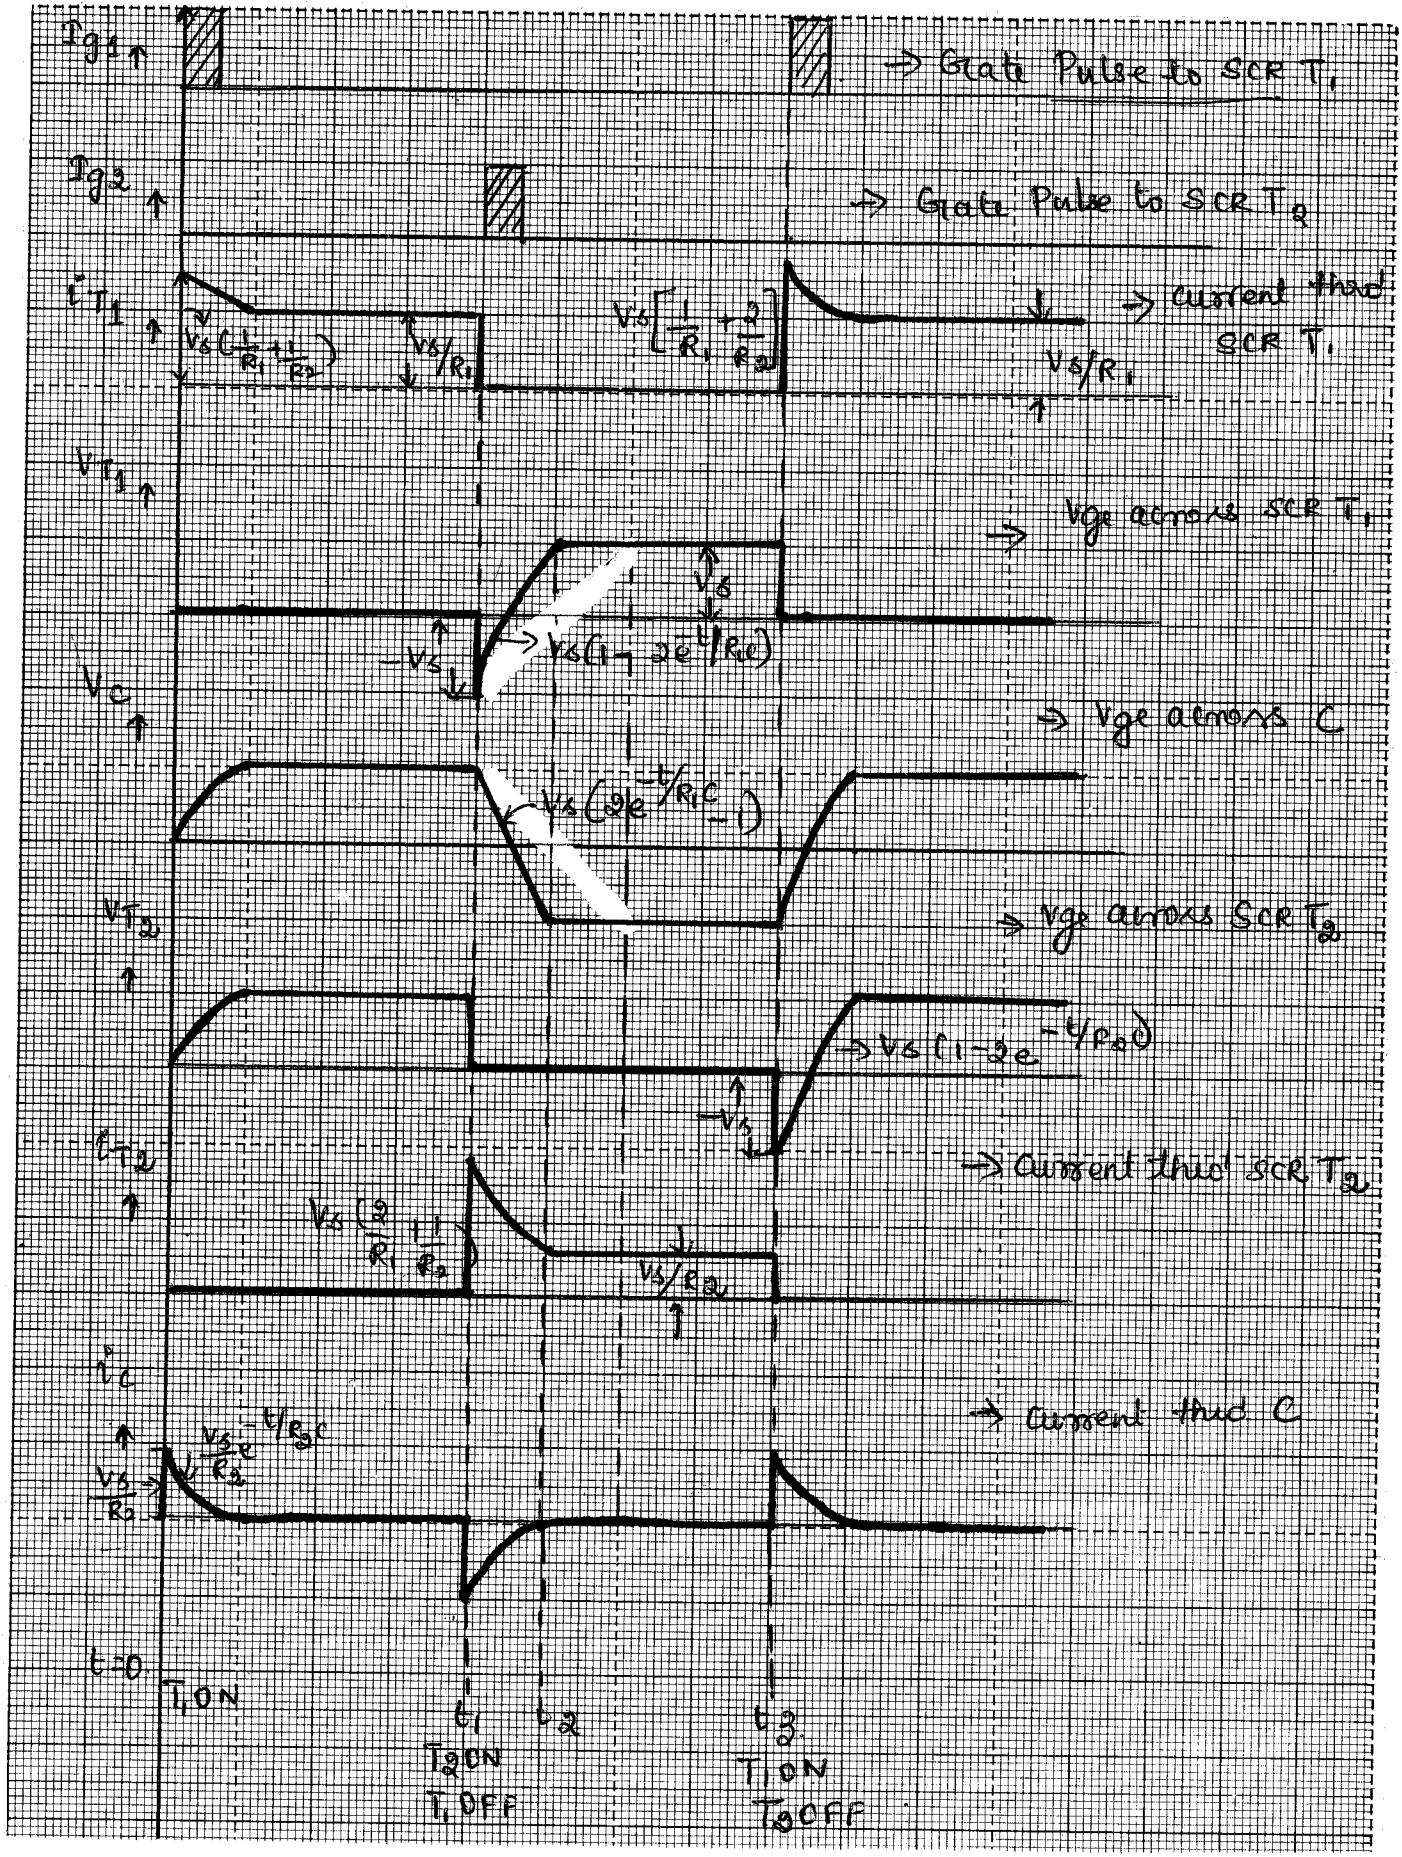 Ig1 ↑
→ Gate Pulse to SCR T1
Ig2 ↑
→ Gate Pulse to SCR T2
iT1 ↑
Vs(1/R1 + 1/R2)
Vs/R1
Vs[1/R1 + 2/R2]
→ current thro'
SCR T1
Vs/R1
VT1 ↑
→ Vge across SCR T1
Vs
-Vs
→ Vs(1 - 2e^-t/R1C)
Vc ↑
→ Vge across C
Vs(2e^-t/R1C - 1)
VT2 ↑
→ Vge across SCR T2
→ Vs(1-2e^-t/R2C)
-Vs
iT2 ↑
→ Current thro' SCR T2
Vs(2/R1 + 1/R2)
Vs/R2
ic ↑
→ Current thro' C
Vs/R2 e^-t/R2C
Vs/R2
t=0
T1 ON
t1
t2
t3
T2 ON
T1 OFF
T1 ON
T2 OFF